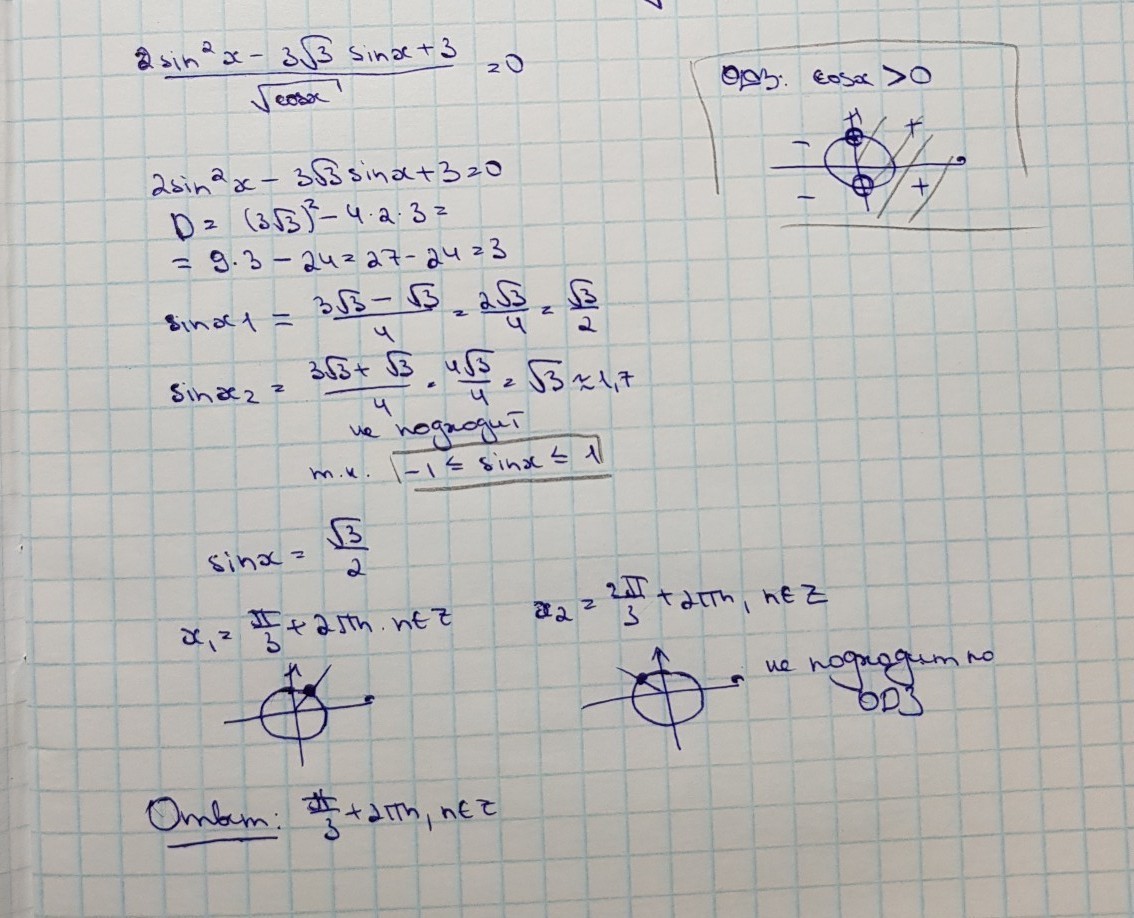 2sin²x - 3√3 sinx + 3 / √cosx = 0
ОДЗ: cosx > 0
- + +
- +
2sin²x - 3√3 sinx + 3 = 0
D = (3√3)² - 4·2·3 =
= 9·3 - 24 = 27 - 24 = 3
sinx1 = (3√3 - √3)/4 = 2√3/4 = √3/2
sinx2 = (3√3 + √3)/4 = 4√3/4 = √3 ≈ 1,7
не подходит
т.к. -1 ≤ sinx ≤ 1
sinx = √3/2
x₁ = π/3 + 2πn, n∈Z
x2 = 2π/3 + 2πn, n∈Z
не подходит по
ОДЗ
Ответ: π/3 + 2πn, n∈Z